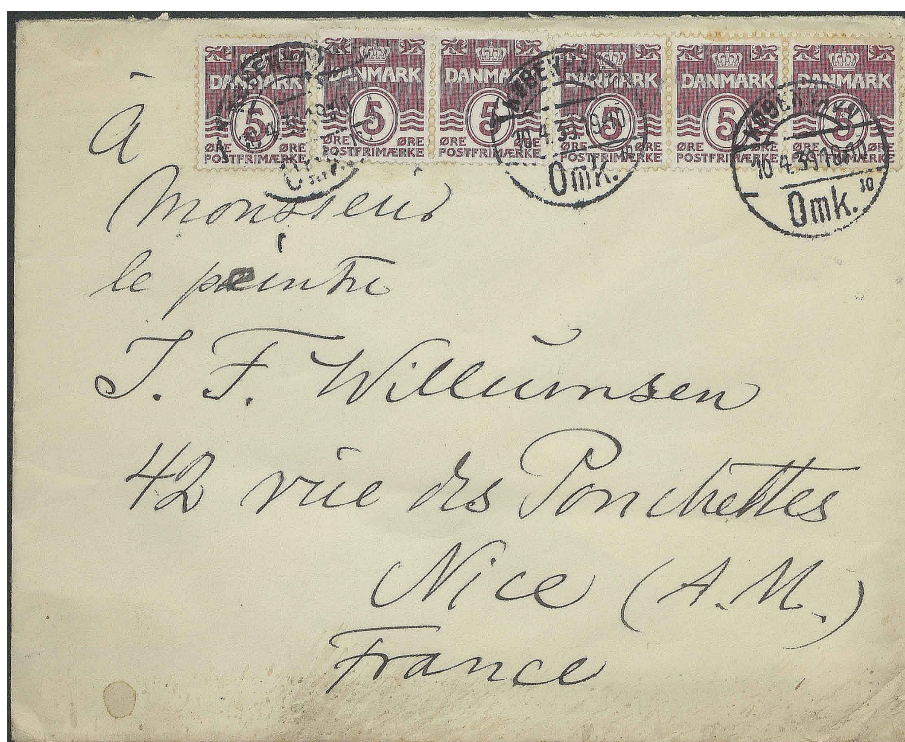 DANMARK 5 ØRE POSTFRIMÆRKE
DANMARK 5 ØRE POSTFRIMÆRKE
DANMARK 5 ØRE POSTFRIMÆRKE
DANMARK 5 ØRE POSTFRIMÆRKE
DANMARK 5 ØRE POSTFRIMÆRKE
DANMARK 5 ØRE POSTFRIMÆRKE
10.4.39
Omk.
10.4.39
Omk. 10
À
Monsieur
le peintre
J. F. Willumsen
42 rue des Ponchettes
Nice (A.M.)
France